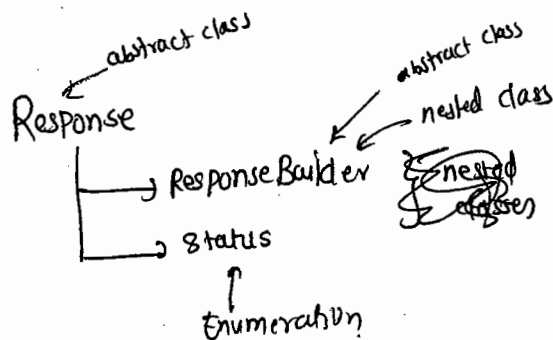 abstract class
abstract class
nested class
Response
ResponseBuilder
nested
classes
Status
Enumeration